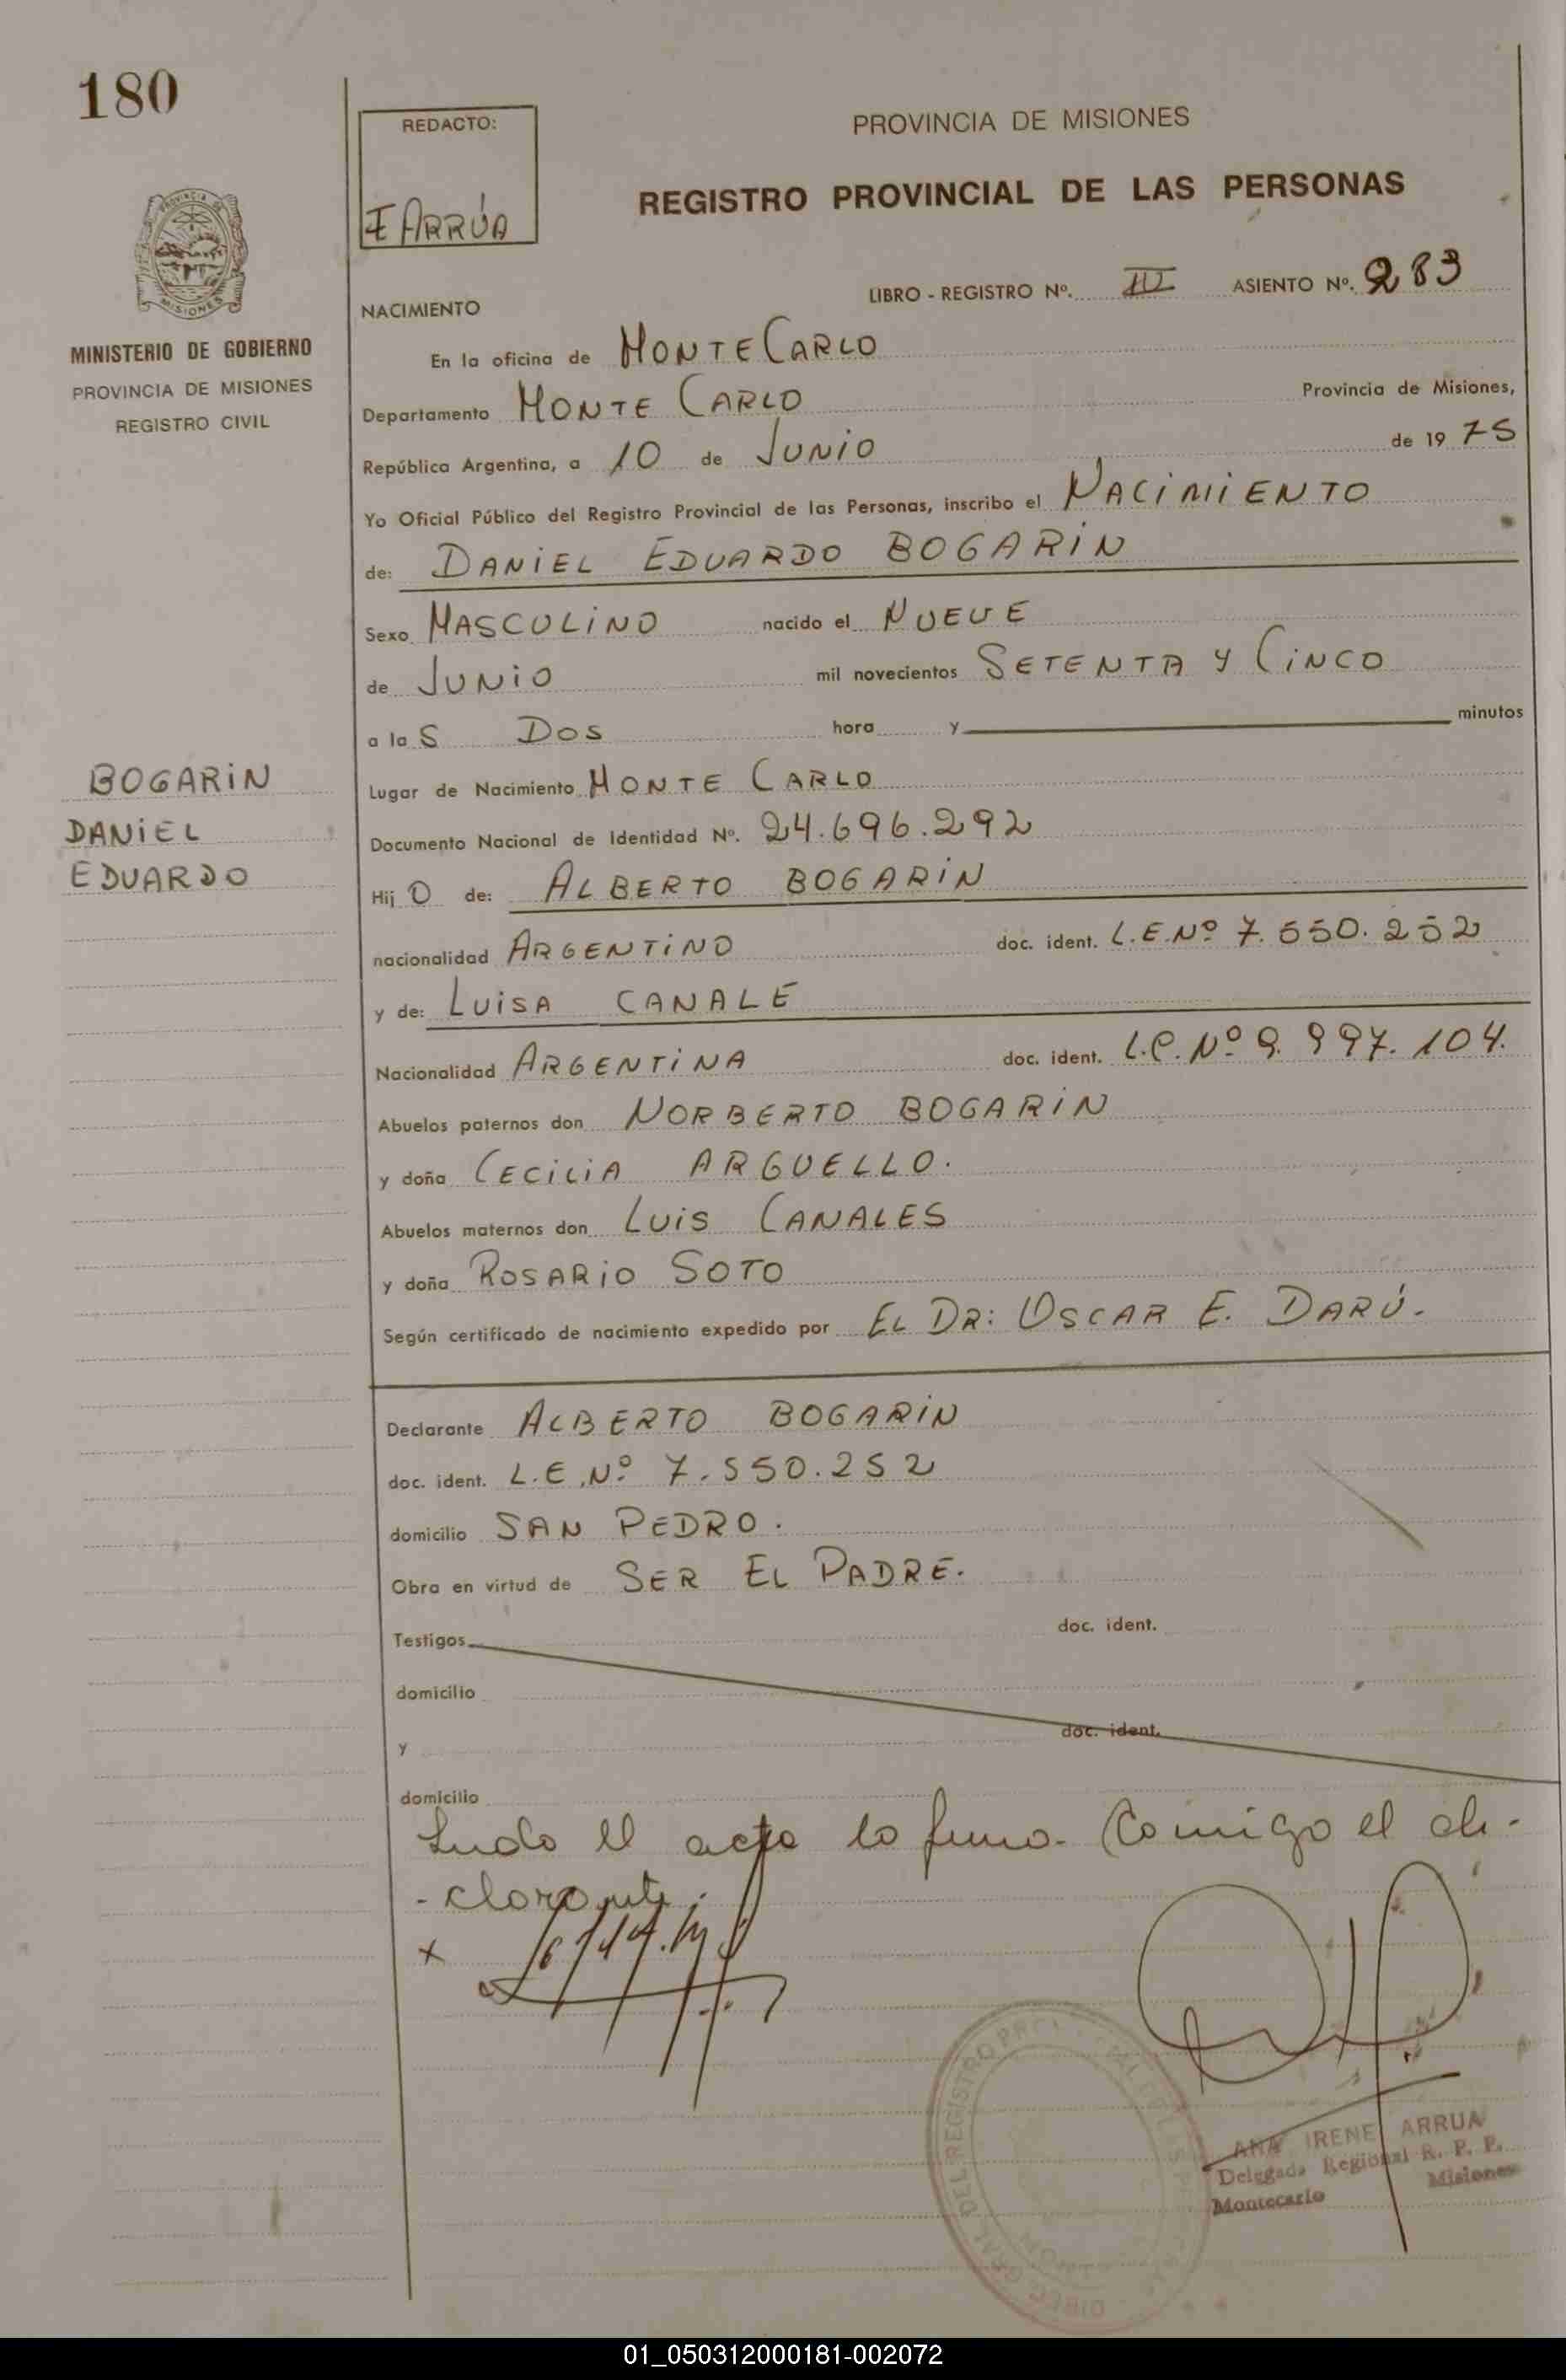 180
REDACTO:
I ARRÚA
PROVINCIA DE MISIONES
REGISTRO PROVINCIAL DE LAS PERSONAS
LIBRO - REGISTRO Nº. III ASIENTO Nº. 283
PROVINCIA DE
MISIONES
MINISTERIO DE GOBIERNO
PROVINCIA DE MISIONES
REGISTRO CIVIL
NACIMIENTO
En la oficina de MONTECARLO
Departamento MONTE CARLO Provincia de Misiones,
República Argentina, a 10 de JUNIO de 19 75
Yo Oficial Público del Registro Provincial de las Personas, inscribo el NACIMIENTO
de: DANIEL EDUARDO BOGARIN
Sexo MASCULINO nacido el NUEVE
de JUNIO mil novecientos SETENTA Y CINCO
a la S DOS hora y minutos
BOGARIN
DANIEL
EDUARDO
Lugar de Nacimiento MONTE CARLO
Documento Nacional de Identidad Nº. 24.696.292
Hij O de: ALBERTO BOGARIN
nacionalidad ARGENTINO doc. ident. L.E.Nº 7.550.252
y de: LUISA CANALE
Nacionalidad ARGENTINA doc. ident. L.C. Nº 9.997.104.
Abuelos paternos don NORBERTO BOGARIN
y doña CECILIA ARGUELLO.
Abuelos maternos don LUIS CANALES
y doña ROSARIO SOTO
Según certificado de nacimiento expedido por EL DR: OSCAR E. DARÚ.
Declarante ALBERTO BOGARIN
doc. ident. L.E.Nº 7.550.252
domicilio SAN PEDRO.
Obra en virtud de SER EL PADRE.
Testigos doc. ident.
domicilio
y doc. ident.
domicilio
Leido el acta lo firma Comigo el de-
-clarante.
x
ANA IRENE ARRUA
Delegada Regional R. P. P.
Montecarlo Misiones
01_050312000181-002072